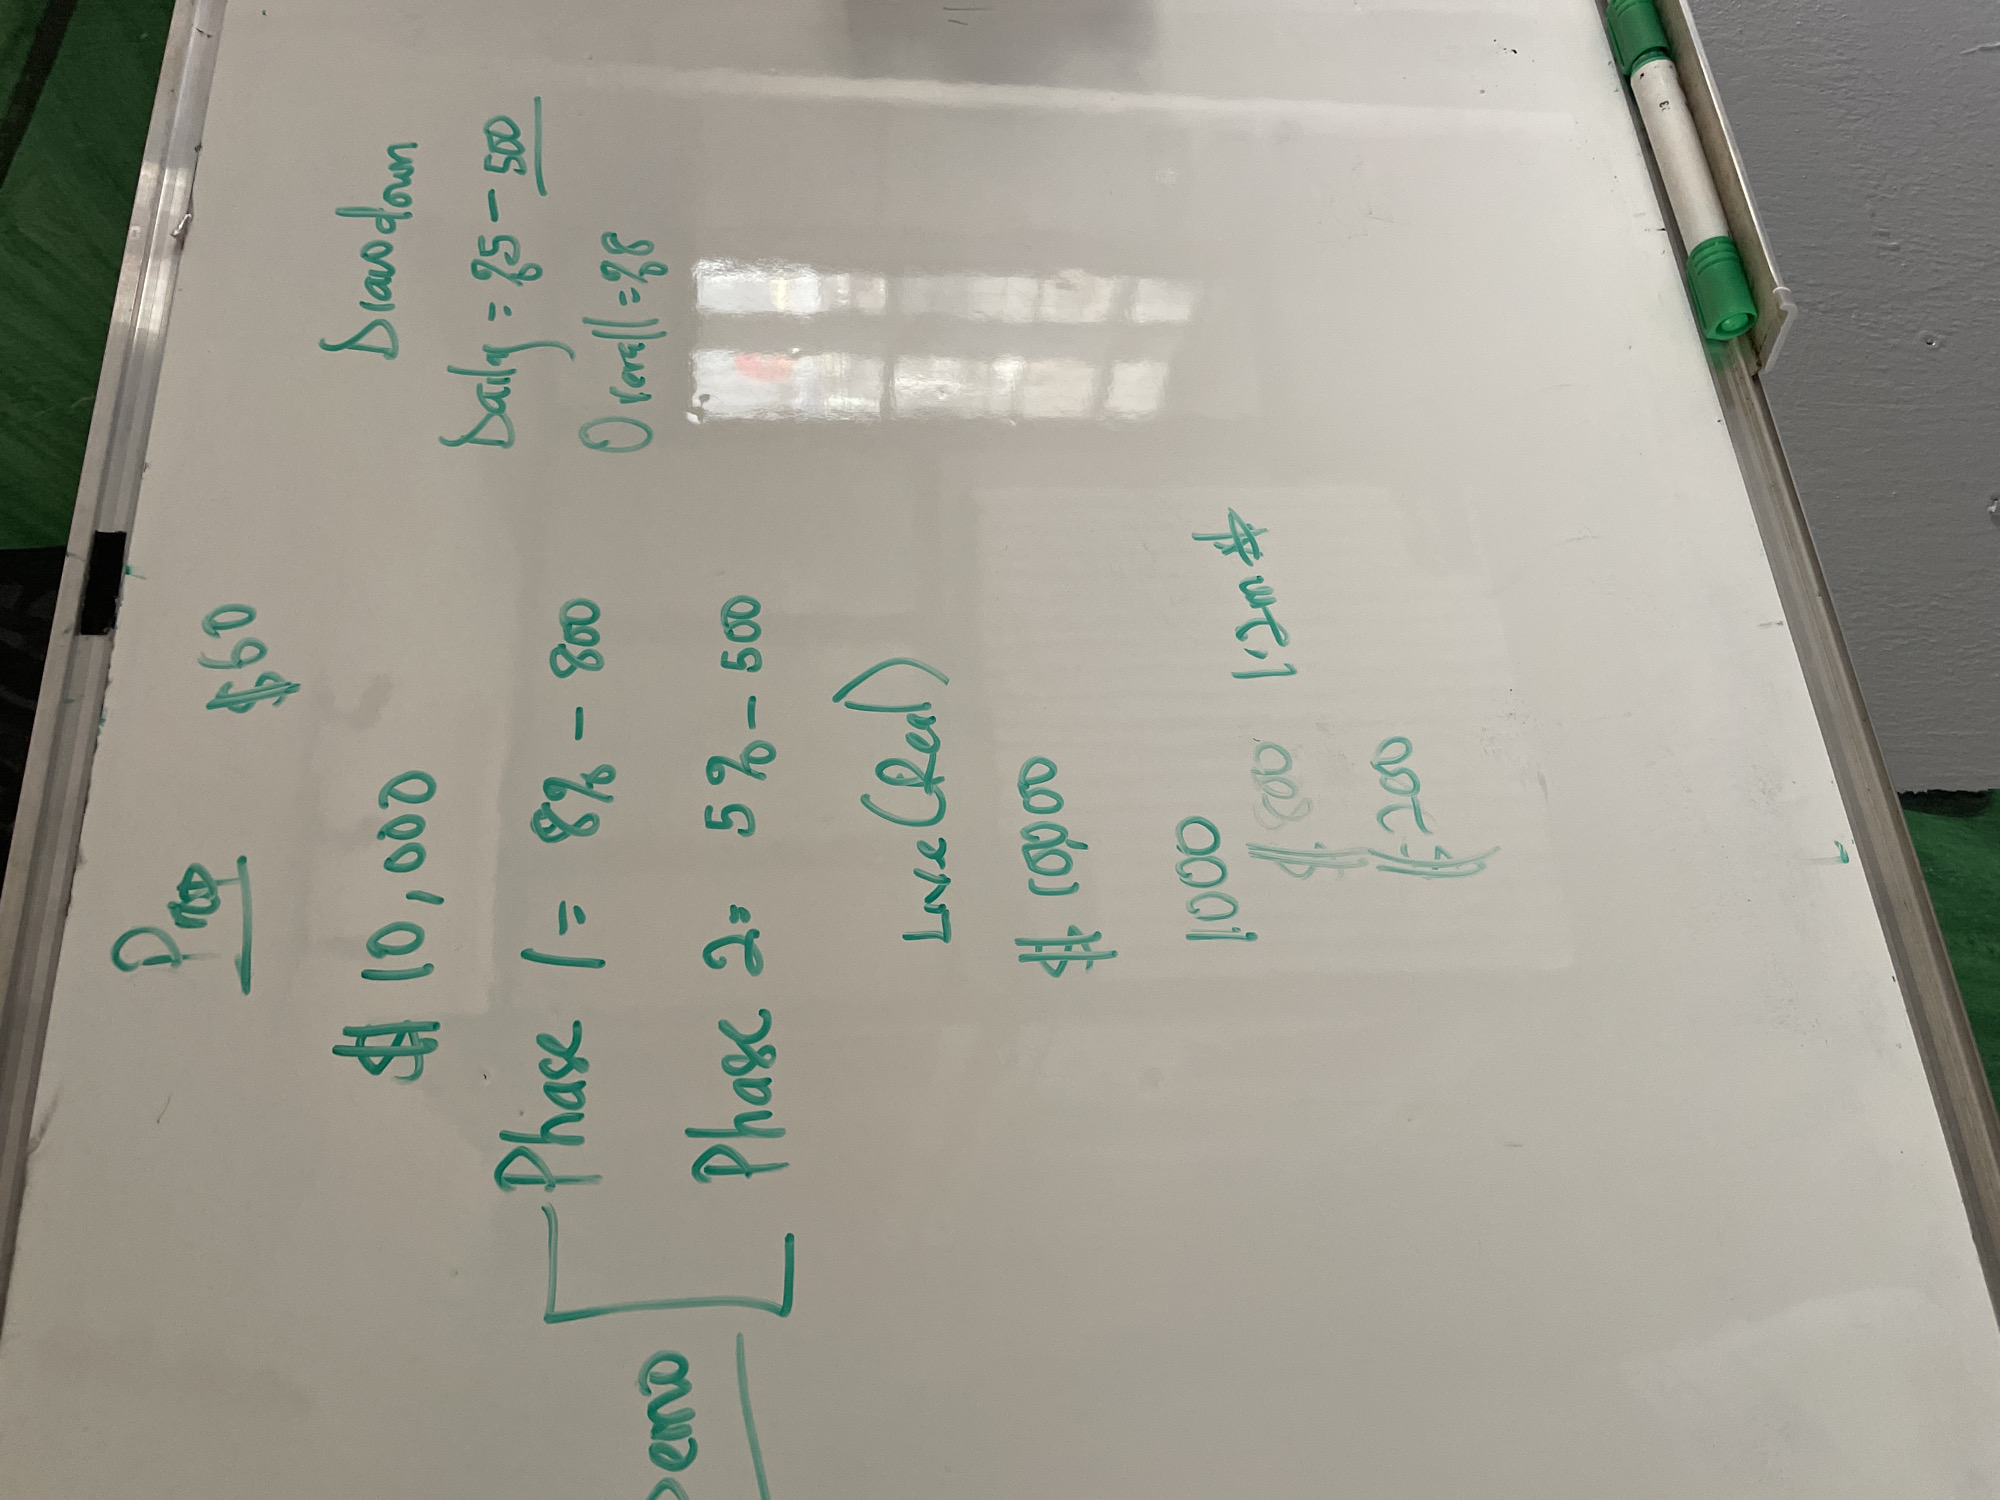 Prop
$60
$10,000
Drawdown
Daily = %5 - 500
Overall = %8
Phase 1 = 8% - 800
Demo
Phase 2= 5% - 500
Live (Real)
$10,000
1000 1.2m #
$800
$200